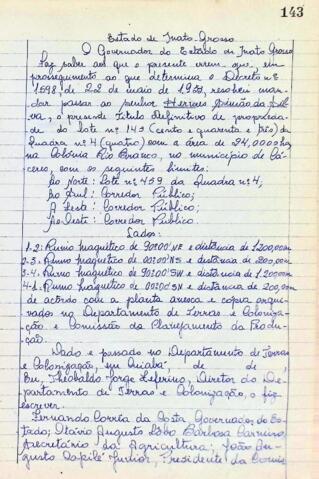 143
Estado de Mato-Grosso
O Governador do Estado de Mato Grosso
Faz saber aos que o presente virem que, em
prosseguimento ao que determina o Decreto nº
1598, de 22 de maio de 1953, resolveu man-
dar passar ao senhor Hermes Simião da Sil-
va, o presente Título Definitivo de proprieda-
de do lote nº 143 (cento e quarenta e três) da
Quadra nº 4 (quatro) com a área de 24,0000 has
na Colônia Rio Branco, no município de Cá-
ceres, com os seguintes limites:
Ao Norte: Lote nº 439 da Quadra nº 4;
Ao Sul: Corredor Público;
A Leste: Corredor Público;
Ao Oeste: Corredor Público.
Lados:
1-2: Rumo magnético de 90º00'NE e distância de 1.200,00m
2-3. Rumo magnético de 00º00'NS e distância de 200,00m
3-4. Rumo magnético de 90º00'SW e distância de 1.200,00m
4-1. Rumo magnético de 00º00'SN e distância de 200,00m
de acordo com a planta anexa e cópia arqui-
vados no Departamento de Terras e Coloniza-
ção e Comissão de Planejamento da Produ-
ção.
Dado e passado no Departamento de Terras
e Colonização, em Cuiabá de de
Eu, Theobaldo Jorge Leferino, Diretor do De-
partamento de Terras e Colonização, o fiz
escrever.
Fernando Corrêa da Costa Governador do Es-
tado; Otávio Augusto Lobo Barbosa Carneiro,
Secretário da Agricultura; João Au-
gusto Capilé Junior, Presidente da Comis